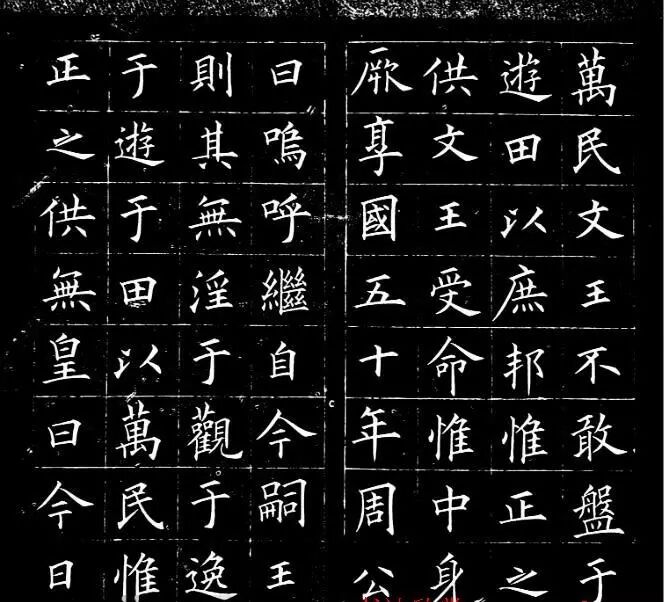 萬民文王不敢盤于
遊田以庶邦惟正之
供文王受命惟中身
厥享國五十年周公
曰嗚呼繼自今嗣王
則其無淫于觀于逸
于遊于田以萬民惟
正之供無皇曰今日